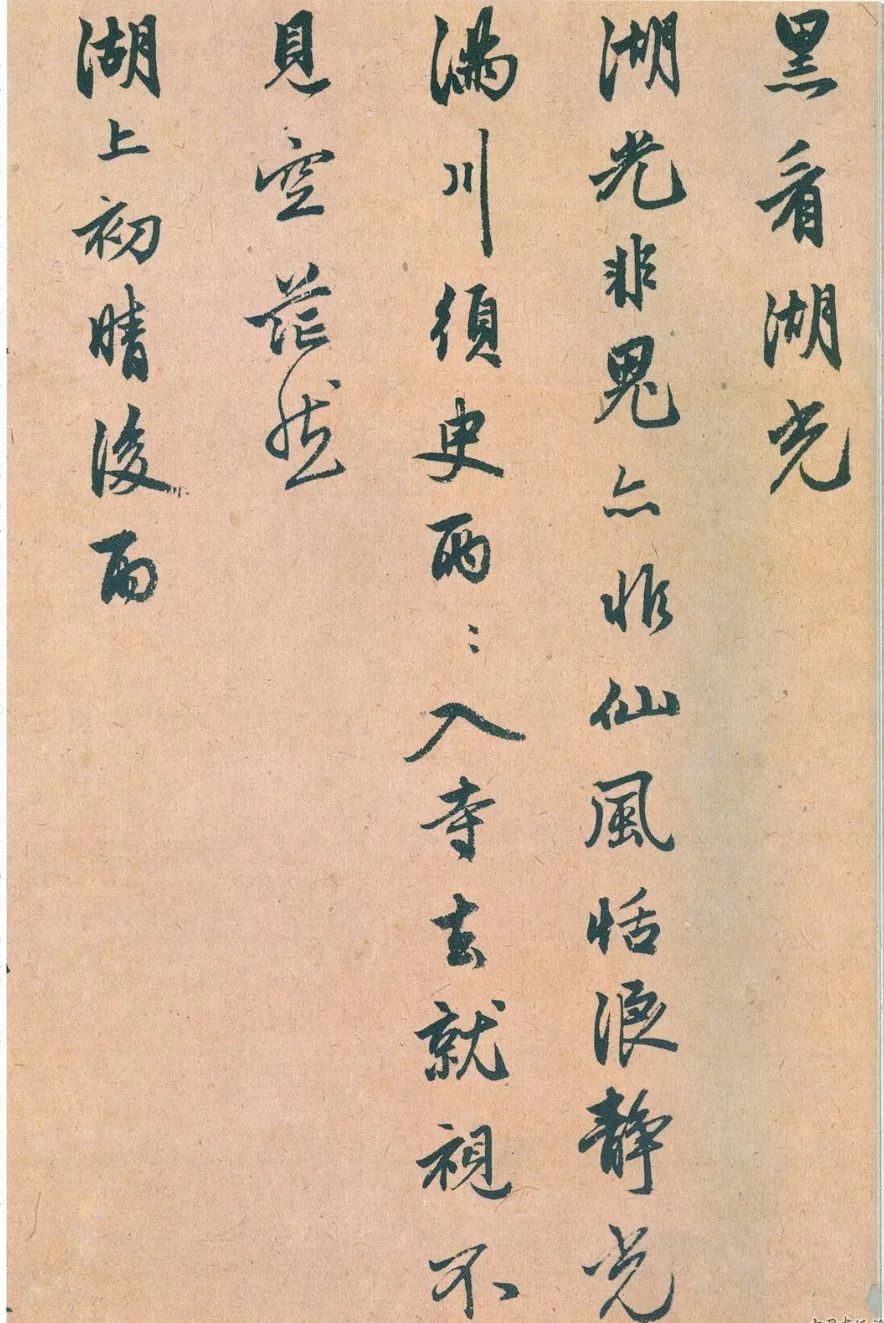 黑看湖光
湖光非鬼亦非仙風恬浪静光
滿川須臾兩〻入寺去就視不
見空茫然
湖上初晴後雨